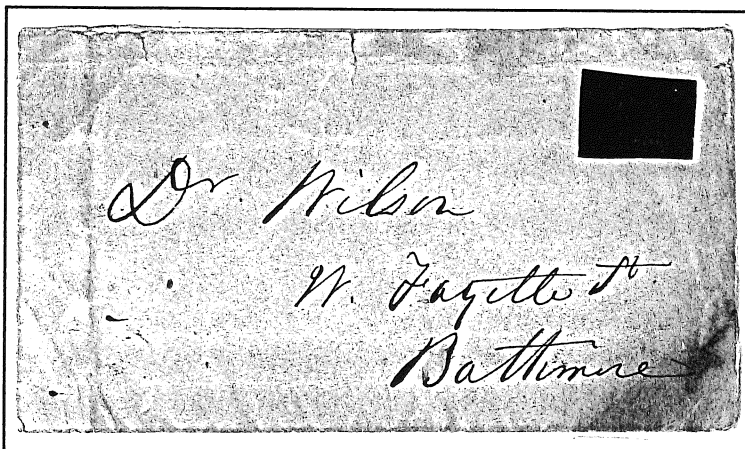 Dr Wilson
W. Fayette St
Baltimore